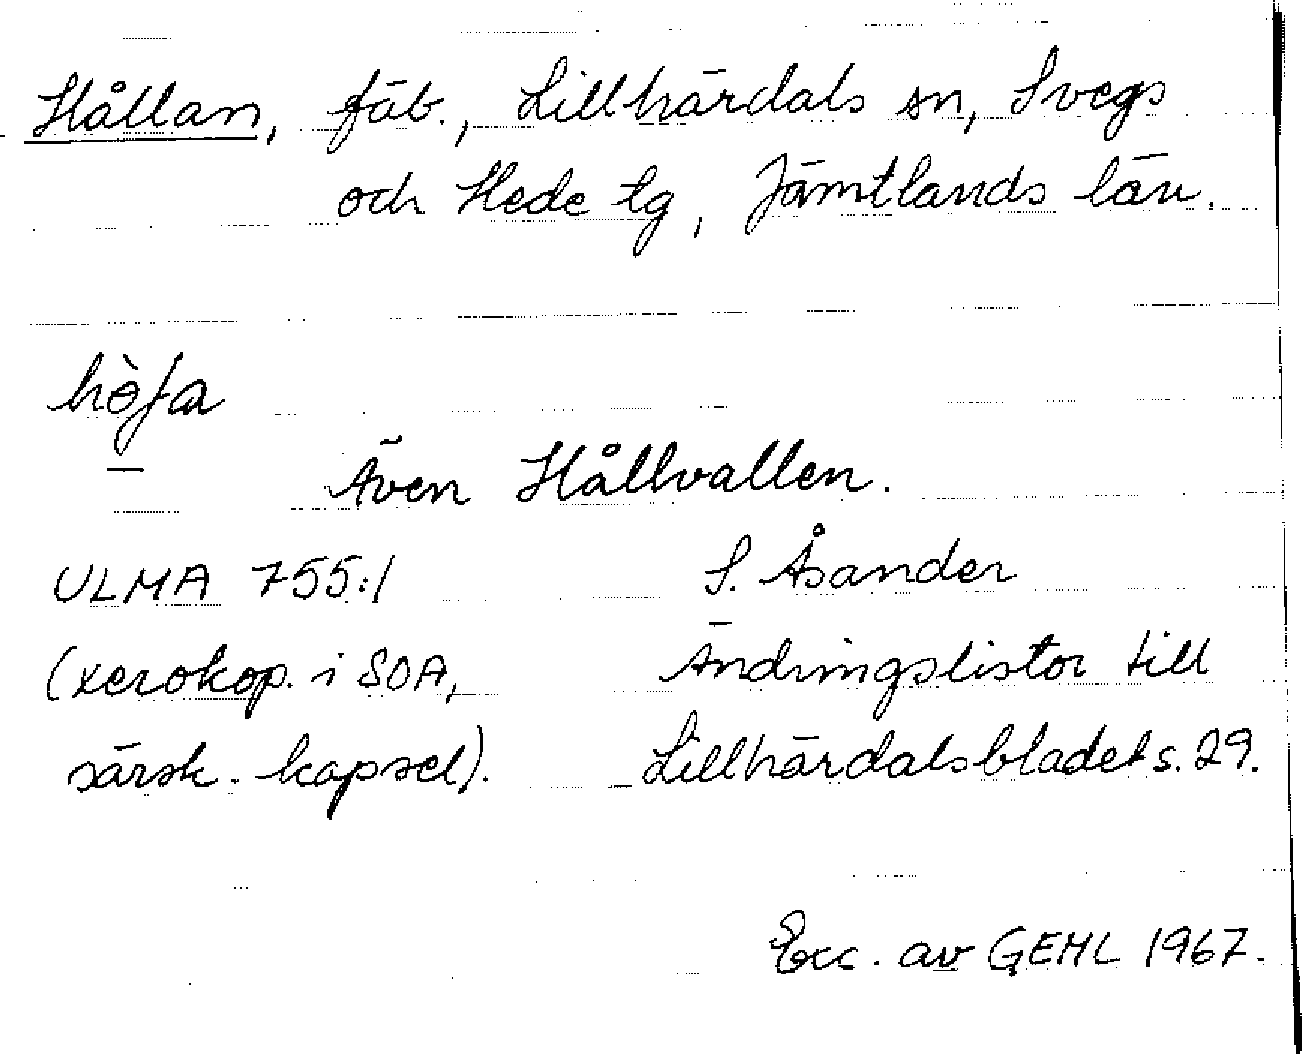 Hållan, fäb., Lillhärdals sn, Svegs
och Hede tg, Jämtlands län.
Även Hållvallen.
ULMA 755:1 S. Åsander
(xerokop. i SOA, Ändringslistor till
särsk. kapsel). Lillhärdalsbladet s. 29.
Exc. av GEHL 1967.